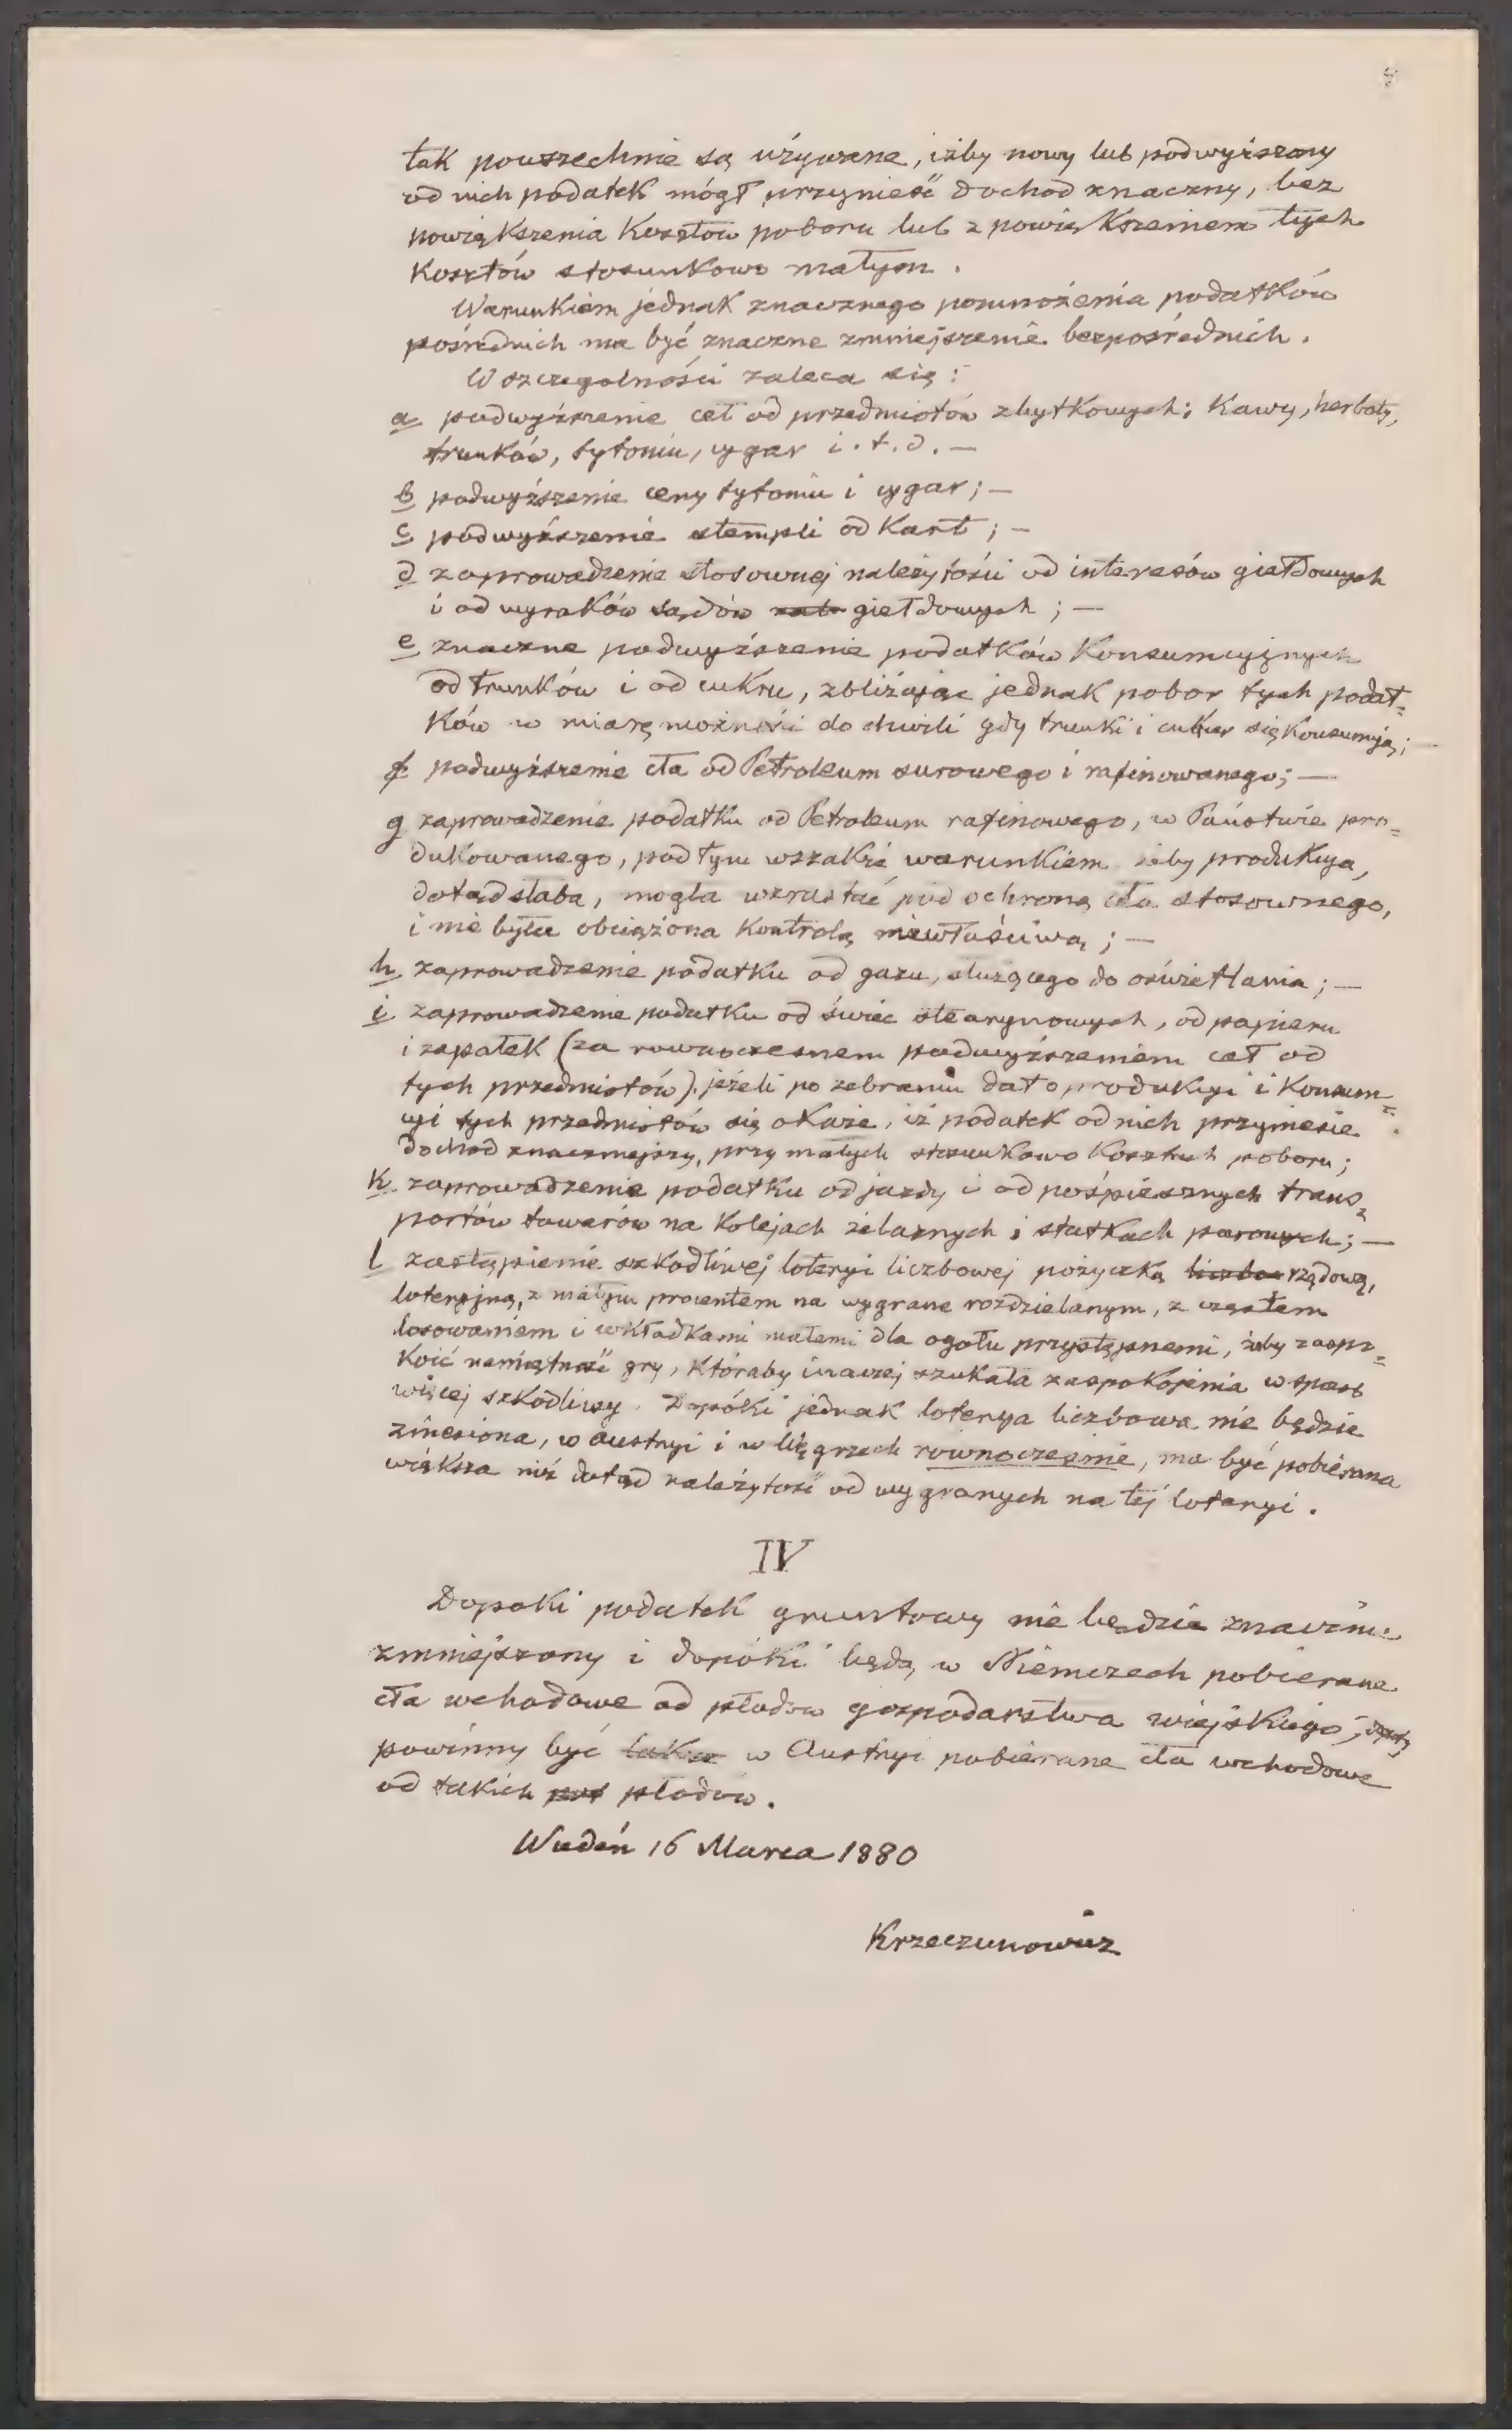 tak powszechnie są używane, iżby nowy lub podwyższony
od nich podatek mógł przynieść dochod znaczny, bez
powiększenia Kosztów poboru lub z powiększeniem tych
Kosztów stosunkowo małym.
Warunkiem jednak znacznego pomnożenia podatków
pośrednich ma być znaczne zmniejszenie bezpośrednich.
W szczegolności zaleca się:
a podwyższenie ceł od przedmiotów zbytkowych; Kawy, herbaty,
trunków, tytoniu, cygar i.t.d. —
b podwyższenie ceny tytoniu i cygar; —
c podwyższenie stempli od Kart; —
d zaprowadzenie stosownej należytości od interesów giełdowych
i od wyroków sądów giełdowych; —
e znaczne podwyższenie podatków Konsumcyjnych
od trunków i od cukru, zbliżając jednak pobor tych podat=
ków w miarę możności do chwili gdy trunki i cukier się Konsumują; —
f podwyższenie cła od Petroleum surowego i rafinowanego; —
g zaprowadzenie podatku od Petroleum rafinowego, w Państwie pro=
dukowanego, pod tym wszakże warunkiem żeby produkcya,
dotąd słaba, mogła wzrastać pod ochroną cła stosownego,
i nie była obciążona Kontrolą niewłaściwą; —
h zaprowadzenie podatku od gazu, służącego do oświetlania; —
i zaprowadzenie podatku od świec stearynowych, od papieru
i zapałek (za rownoczesnem podwyższeniem ceł od
tych przedmiotów) jeżeli po zebraniu dat o produkcyi i Konsum=
cyi tych przedmiotów się okaże, iż podatek od nich przyniesie
dochod znaczniejszy, przy małych stosunkowo Kosztach poboru;
k zaprowadzenie podatku od jazdy i od pośpiesznych trans=
portów towarów na Kolejach żelaznych i statkach parowych; —
l zastąpienie szkodliwej loteryi liczbowej pożyczką liczbo rządową,
loteryjną, z małym procentem na wygrane rozdzielanym, z częstem
losowaniem i wkładkami małemi dla ogołu przystępnemi, żeby zaspo=
koić namiętność gry, któraby inaczej szukała zaspokojenia w sposb
więcej szkodliwy. Dopóki jednak loterya liczbowa nie będzie
zniesiona, w Austryi i w Węgrzech rownocześnie, ma być pobierana
większa niż dotąd należytość od wygranych na tej loteryi.
IV
Dopoki podatek gruntowy nie będzie znacznie
zmniejszony i dopóki będą w Niemczech pobierane
cła wchodowe od płodow gospodarstwa wiejskiego,
powinny być takze w Austryi pobierane cła wchodowe
od takich płodow.
Wiedeń 16 Marca 1880
Krzeczunowicz